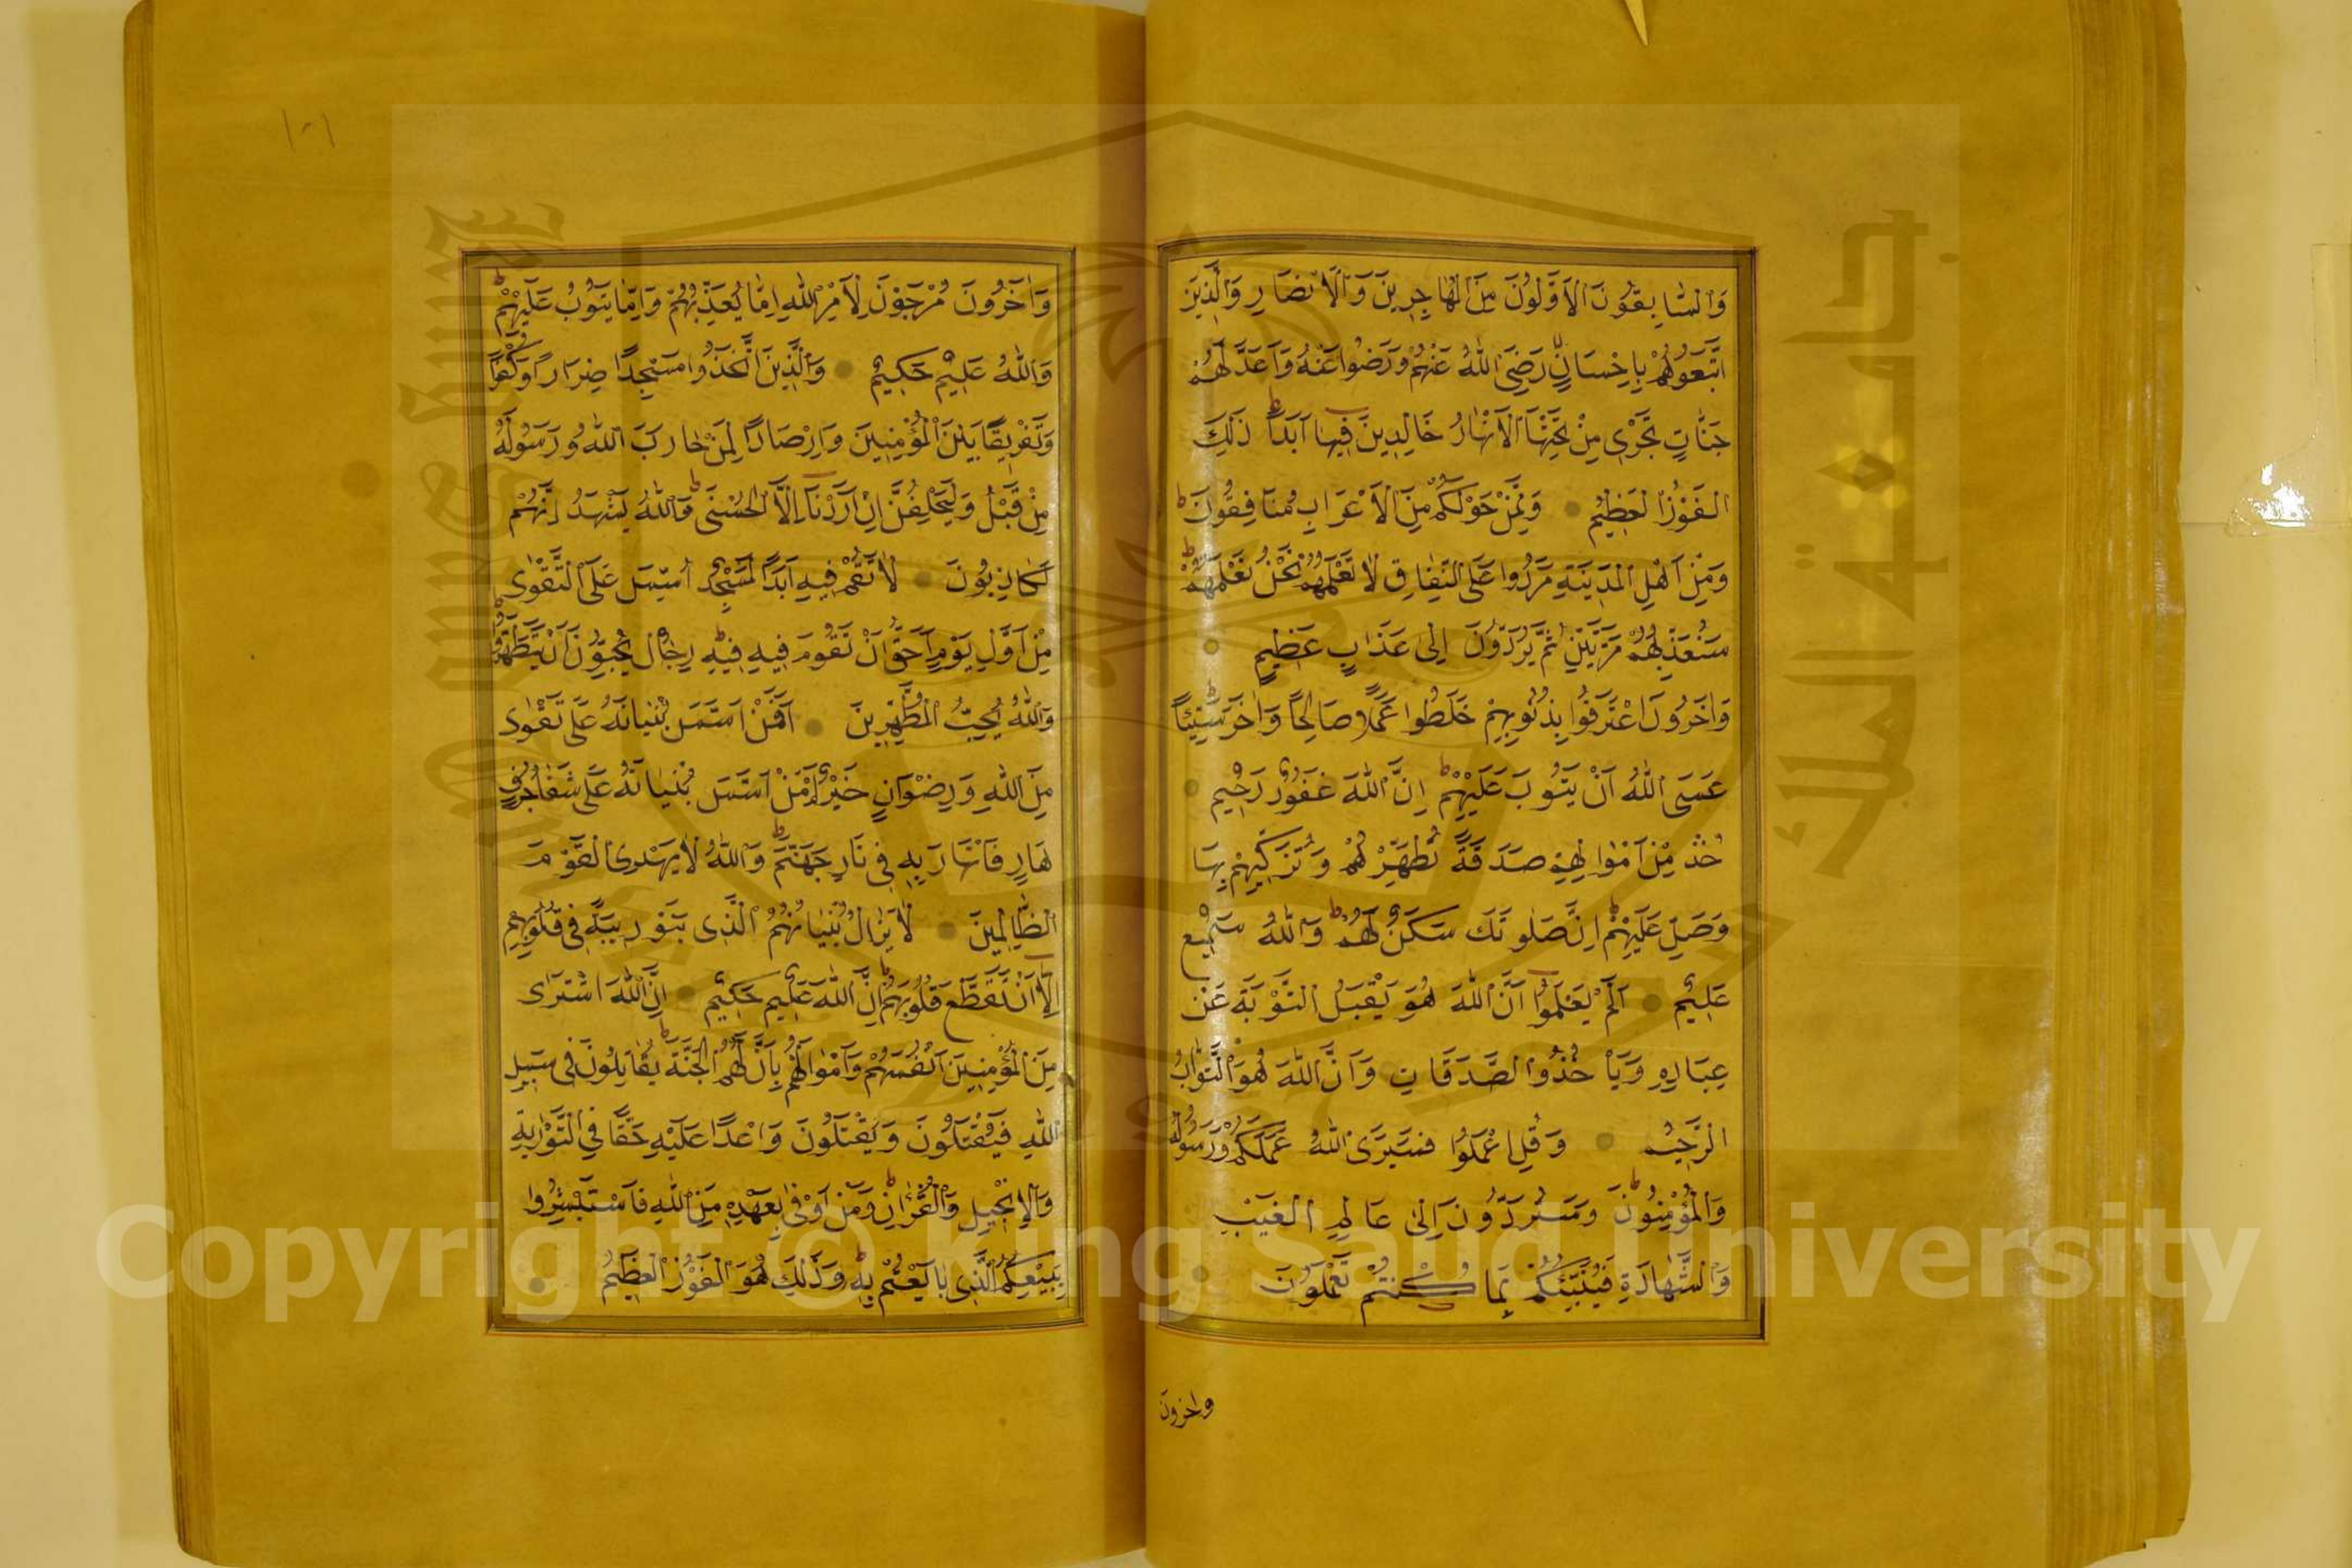 وَالسَّابِقُونَ الْاَوَّلُونَ مِنَ الْمُهَاجِرِينَ وَالْاَنْصَارِ وَالَّذِينَ
اتَّبَعُوهُمْ بِاِحْسَانٍ رَضِىَ اللّٰهُ عَنْهُمْ وَرَضُوا عَنْهُ وَاَعَدَّ لَهُمْ
جَنَّاتٍ تَجْرِى مِنْ تَحْتِهَا الْاَنْهَارُ خَالِدِينَ فِيهَا اَبَدًا ط ذٰلِكَ
الْفَوْزُ الْعَظِيمُ ۝ وَمِمَّنْ حَوْلَكُمْ مِنَ الْاَعْرَابِ مُنَافِقُونَ ط
وَمِنْ اَهْلِ الْمَدِينَةِ مَرَدُوا عَلَى النِّفَاقِ لَا تَعْلَمُهُمْ نَحْنُ نَعْلَمُهُمْ ط
سَنُعَذِّبُهُمْ مَرَّتَيْنِ ثُمَّ يُرَدُّونَ اِلٰى عَذَابٍ عَظِيمٍ ۝
وَاٰخَرُونَ اعْتَرَفُوا بِذُنُوبِهِمْ خَلَطُوا عَمَلًا صَالِحًا وَاٰخَرَ سَيِّئًا ط
عَسَى اللّٰهُ اَنْ يَتُوبَ عَلَيْهِمْ ط اِنَّ اللّٰهَ غَفُورٌ رَحِيمٌ ۝
خُذْ مِنْ اَمْوَالِهِمْ صَدَقَةً تُطَهِّرُهُمْ وَتُزَكِّيهِمْ بِهَا
وَصَلِّ عَلَيْهِمْ ط اِنَّ صَلٰوتَكَ سَكَنٌ لَهُمْ ط وَاللّٰهُ سَمِيعٌ
عَلِيمٌ ۝ اَلَمْ يَعْلَمُوا اَنَّ اللّٰهَ هُوَ يَقْبَلُ التَّوْبَةَ عَنْ
عِبَادِهِ وَيَاْخُذُ الصَّدَقَاتِ وَاَنَّ اللّٰهَ هُوَ التَّوَّابُ
الرَّحِيمُ ۝ وَقُلِ اعْمَلُوا فَسَيَرَى اللّٰهُ عَمَلَكُمْ وَرَسُولُهُ
وَالْمُؤْمِنُونَ ط وَسَتُرَدُّونَ اِلٰى عَالِمِ الْغَيْبِ
وَالشَّهَادَةِ فَيُنَبِّئُكُمْ بِمَا كُنْتُمْ تَعْمَلُونَ ۝
واخرون
١٠١
وَاٰخَرُونَ مُرْجَوْنَ لِاَمْرِ اللّٰهِ اِمَّا يُعَذِّبُهُمْ وَاِمَّا يَتُوبُ عَلَيْهِمْ ط
وَاللّٰهُ عَلِيمٌ حَكِيمٌ ۝ وَالَّذِينَ اتَّخَذُوا مَسْجِدًا ضِرَارًا وَكُفْرًا
وَتَفْرِيقًا بَيْنَ الْمُؤْمِنِينَ وَاِرْصَادًا لِمَنْ حَارَبَ اللّٰهَ وَرَسُولَهُ
مِنْ قَبْلُ وَلَيَحْلِفُنَّ اِنْ اَرَدْنَا اِلَّا الْحُسْنٰى ط وَاللّٰهُ يَشْهَدُ اِنَّهُمْ
لَكَاذِبُونَ ۝ لَا تَقُمْ فِيهِ اَبَدًا لَمَسْجِدٌ اُسِّسَ عَلَى التَّقْوٰى
مِنْ اَوَّلِ يَوْمٍ اَحَقُّ اَنْ تَقُومَ فِيهِ ط فِيهِ رِجَالٌ يُحِبُّونَ اَنْ يَتَطَهَّرُوا ط
وَاللّٰهُ يُحِبُّ الْمُطَّهِّرِينَ ۝ اَفَمَنْ اَسَّسَ بُنْيَانَهُ عَلٰى تَقْوٰى
مِنَ اللّٰهِ وَرِضْوَانٍ خَيْرٌ اَمْ مَنْ اَسَّسَ بُنْيَانَهُ عَلٰى شَفَا جُرُفٍ
هَارٍ فَانْهَارَ بِهِ فِى نَارِ جَهَنَّمَ ط وَاللّٰهُ لَا يَهْدِى الْقَوْمَ
الظَّالِمِينَ ۝ لَا يَزَالُ بُنْيَانُهُمُ الَّذِى بَنَوْا رِيبَةً فِى قُلُوبِهِمْ
اِلَّا اَنْ تَقَطَّعَ قُلُوبُهُمْ ط اِنَّ اللّٰهَ عَلِيمٌ حَكِيمٌ ۝ اِنَّ اللّٰهَ اشْتَرٰى
مِنَ الْمُؤْمِنِينَ اَنْفُسَهُمْ وَاَمْوَالَهُمْ بِاَنَّ لَهُمُ الْجَنَّةَ ط يُقَاتِلُونَ فِى سَبِيلِ
اللّٰهِ فَيَقْتُلُونَ وَيُقْتَلُونَ وَعْدًا عَلَيْهِ حَقًّا فِى التَّوْرٰيةِ
وَالْاِنْجِيلِ وَالْقُرْاٰنِ ط وَمَنْ اَوْفٰى بِعَهْدِهِ مِنَ اللّٰهِ فَاسْتَبْشِرُوا
بِبَيْعِكُمُ الَّذِى بَايَعْتُمْ بِهِ ط وَذٰلِكَ هُوَ الْفَوْزُ الْعَظِيمُ ۝
Copyright © King Saud University